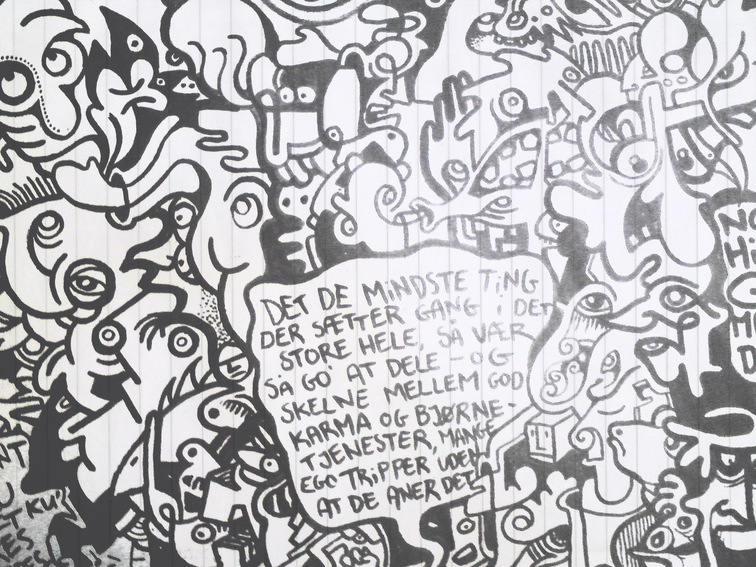 DET DE MINDSTE TING
DER SÆTTER GANG I DET
STORE HELE, SÅ VÆR
SÅ GO' AT DELE - OG
SKELNE MELLEM GOD
KARMA OG BJØRNE-
TJENESTER, MANGE
EGO TRIPPER UDEN
AT DE ANER DET
KUN